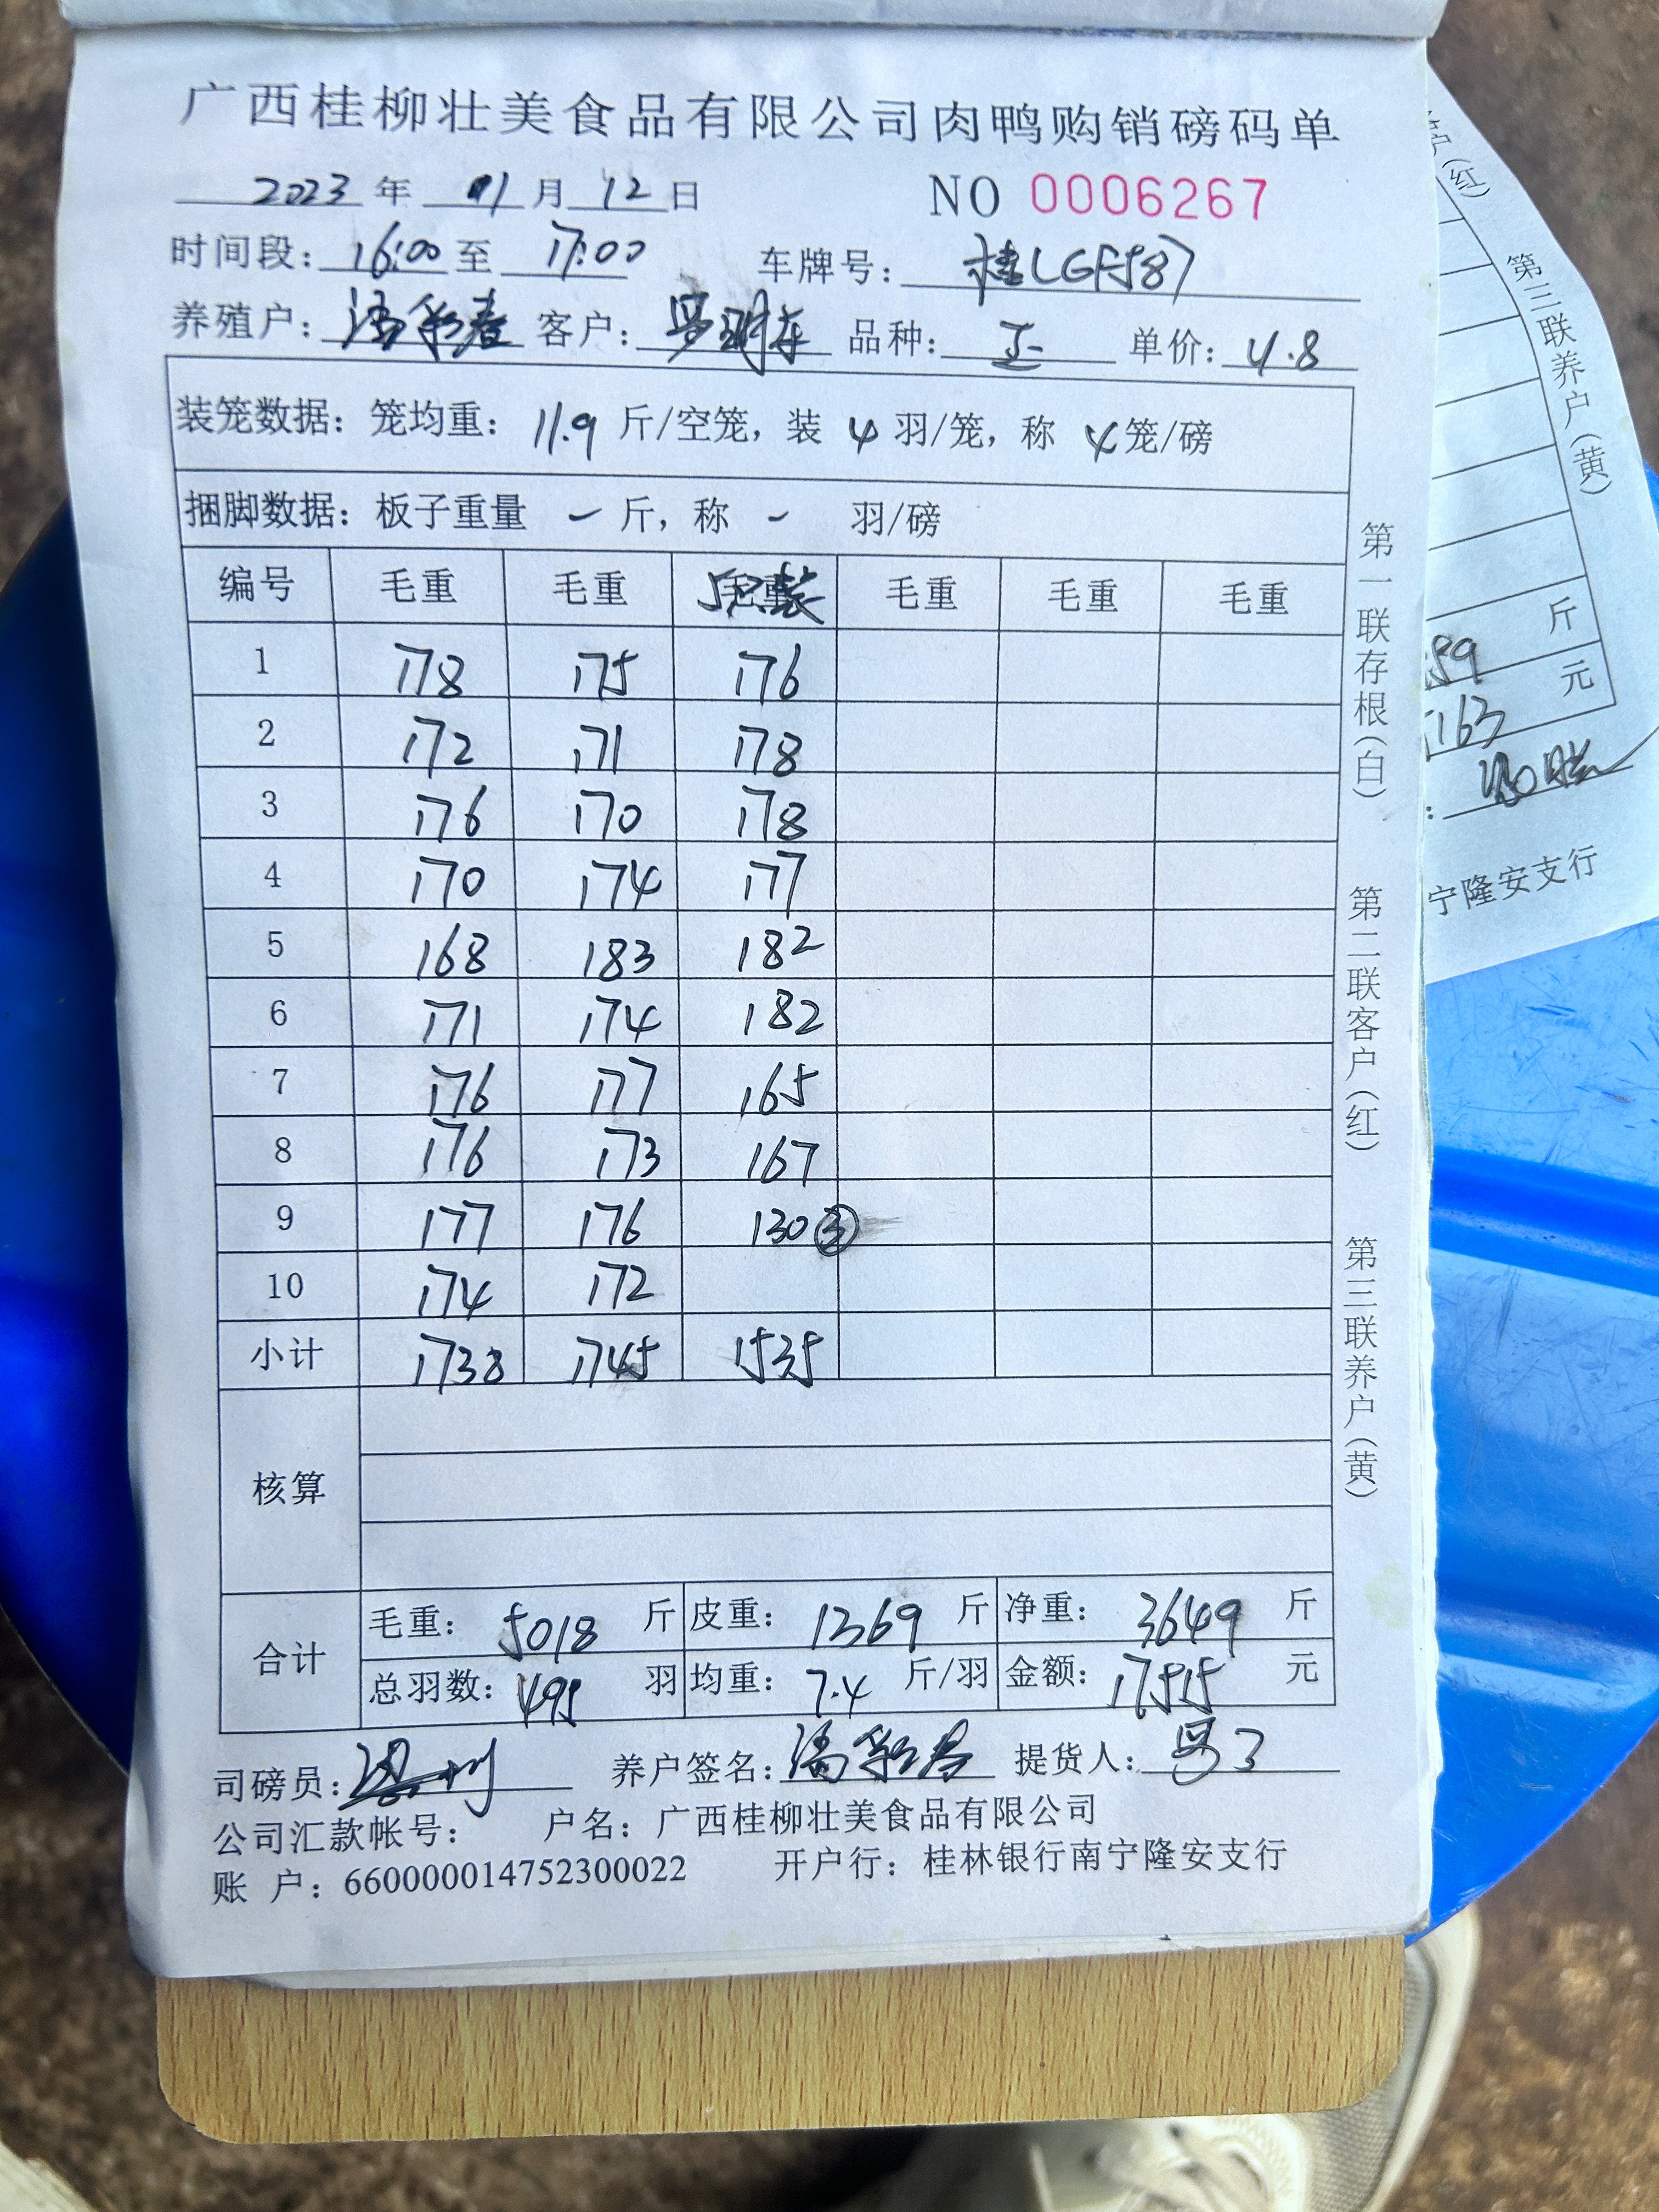 广西桂柳壮美食品有限公司肉鸭购销磅码单
2023年 01月 12日 NO 0006267
时间段: 16:00 至 17:00 车牌号: 桂LGF587
养殖户: 客户: 品种: 单价: 4.8
装笼数据: 笼均重: 11.9 斤/空笼, 装 4 羽/笼, 称 4 笼/磅
捆脚数据: 板子重量 - 斤, 称 - 羽/磅
编号 毛重 毛重 5只装 毛重 毛重 毛重
1 178 175 176
2 172 171 178
3 176 170 178
4 170 174 177
5 168 183 182
6 171 174 182
7 176 177 165
8 176 173 167
9 177 176 130 ③
10 174 172
小计 1738 1745 1535
核算
合计 毛重: 5018 斤 皮重: 1369 斤 净重: 3649 斤
总羽数: 495 羽 均重: 7.4 斤/羽 金额: 17515 元
司磅员: 养户签名: 提货人:
公司汇款帐号: 户名: 广西桂柳壮美食品有限公司
账 户: 660000014752300022 开户行: 桂林银行南宁隆安支行
第一联存根(白) 第二联客户(红) 第三联养户(黄)
户(红) 第三联养户(黄)
斤
59 元
163
宁隆安支行